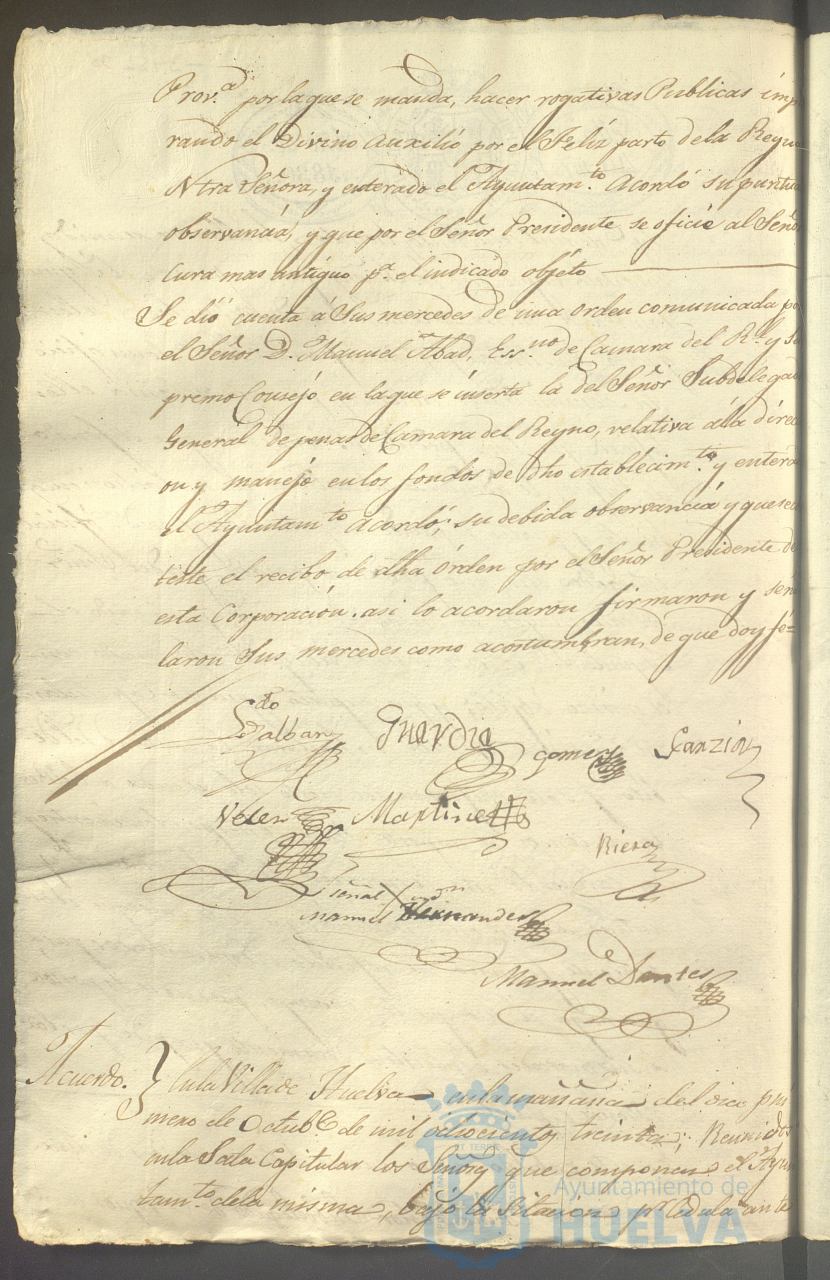 Prov.ª por la que se manda, hacer rogativas Publicas imp
rando el Divino Auxilio por el Feliz parto de la Reyn
Ntra Señora, y enterado el Ayuntam.to Acordó su puntu
observancia, y que por el Señor Presidente se oficie al Seño
Cura mas antiguo p.ª el indicado objeto
Se dió cuenta á Sus mercedes de una orden comunicada po
el Señor D. Manuel Abad, Ess.no de Camara del R.l y Su
premo Consejo en la que se inserta la del Señor Subdelegad
General de penas de Camara del Reyno, relativa á la direc
on y manejo en los fondos de dho establecim.to y entera
el Ayuntam.to Acordó, su debida observancia y que se con
teste el recibo de dha órden por el Señor Presidente de
esta Corporación. asi lo acordaron firmaron y señ
laron Sus mercedes como acostumbran, de que doy fé=
Ldo
Dalban Guardia Gomez Garzia
Velez Martinez
Riera
Señal X de
Manuel Hernandez
Manuel Dantes
Acuerdo. En la Villa de Huelva en la mañana del dia pri
mero de Octub.e de mil ochocientos treinta; Reunidos
en la Sala Capitular los Señores que componen el Ayun
tam.to de la misma, bajo de p.r Cedula ante
Ayuntamiento de
HUELVA